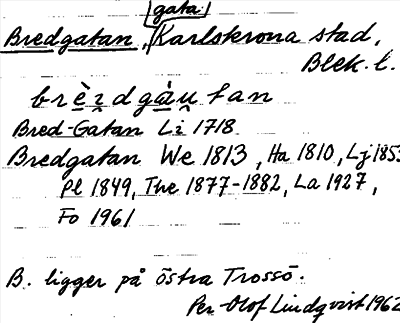 gata
Bredgatan, Karlskrona stad,
Blek. l.
brèi̯dgàu̯tan
Bred-Gatan Li 1718
Bredgatan We 1813, Ha 1810, Lj 1853
Pl 1849, The 1877-1882, La 1927,
Fo 1961
B. ligger på östra Trossö.
Per-Olof Lindqvist 1962